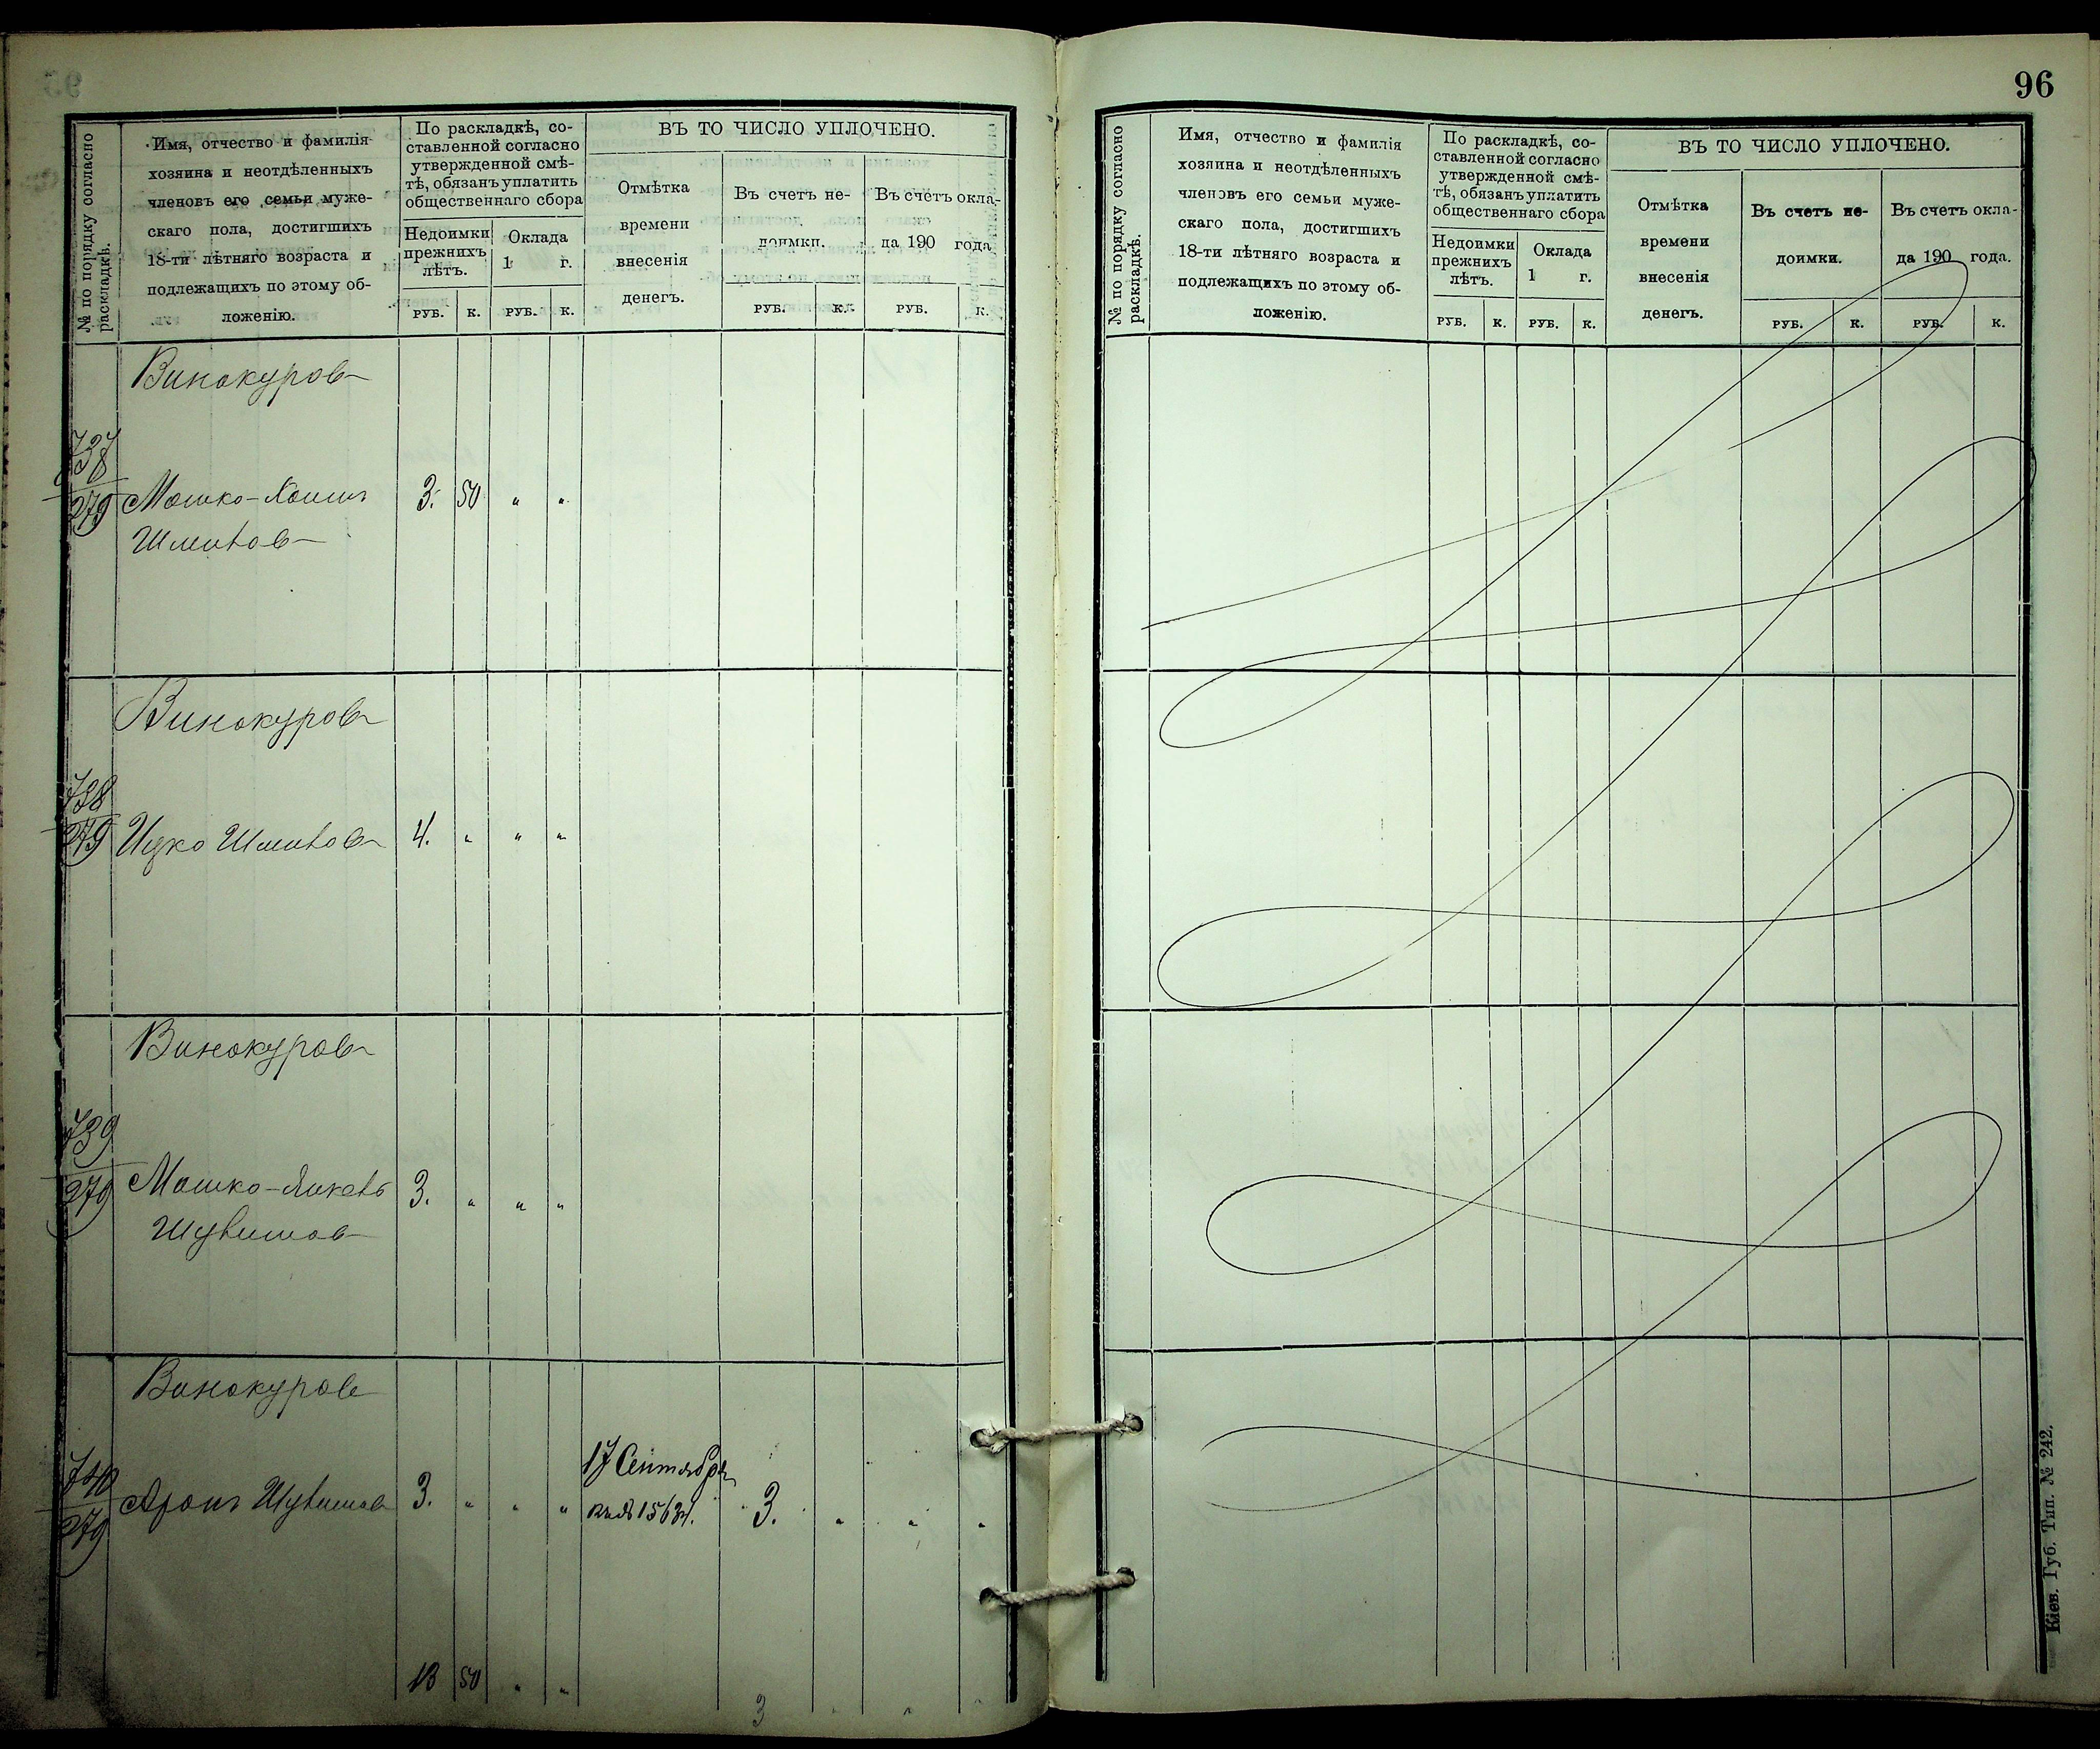 № по порядку согласно
раскладкѣ.
Имя, отчество и фамилія
хозяина и неотдѣленныхъ
членовъ его семьи муже-
скаго пола, достигшихъ
18-ти лѣтняго возраста и
подлежащихъ по этому об-
ложенію.
По раскладкѣ, со-
ставленной согласно
утвержденной смѣ-
тѣ, обязанъ уплатить
общественнаго сбора
Недоимки
прежнихъ
лѣтъ.
Оклада
1 г.
РУБ. К. РУБ. К.
ВЪ ТО ЧИСЛО УПЛОЧЕНО.
Отмѣтка
времени
внесенія
денегъ.
Въ счетъ не-
доимки.
РУБ. К.
Въ счетъ окла-
да 190 года
РУБ. К.
Винокуров
737
279
Мошко-Хаимъ 3. 50 " "
Шмилов
Винокуров
738
279
Ицко Шмилов 4. " " "
Винокуров
739
279
Мошко-Янкель 3. " " "
Шулимов
Винокуров
740
279
17 Сентября
Аронъ Шулимов 3. " " " кв№ 1563. 3. " " "
13 50 " "
3 " " "
96
№ по порядку согласно
раскладкѣ.
Имя, отчество и фамилія
хозяина и неотдѣленныхъ
членовъ его семьи муже-
скаго пола, достигшихъ
18-ти лѣтняго возраста и
подлежащихъ по этому об-
ложенію.
По раскладкѣ, со-
ставленной согласно
утвержденной смѣ-
тѣ, обязанъ уплатить
общественнаго сбора
Недоимки
прежнихъ
лѣтъ.
Оклада
1 г.
РУБ. К. РУБ. К.
ВЪ ТО ЧИСЛО УПЛОЧЕНО.
Отмѣтка
времени
внесенія
денегъ.
Въ счетъ не-
доимки.
РУБ. К.
Въ счетъ окла-
да 190 года.
РУБ. К.
Кіев. Губ. Тип. № 242.